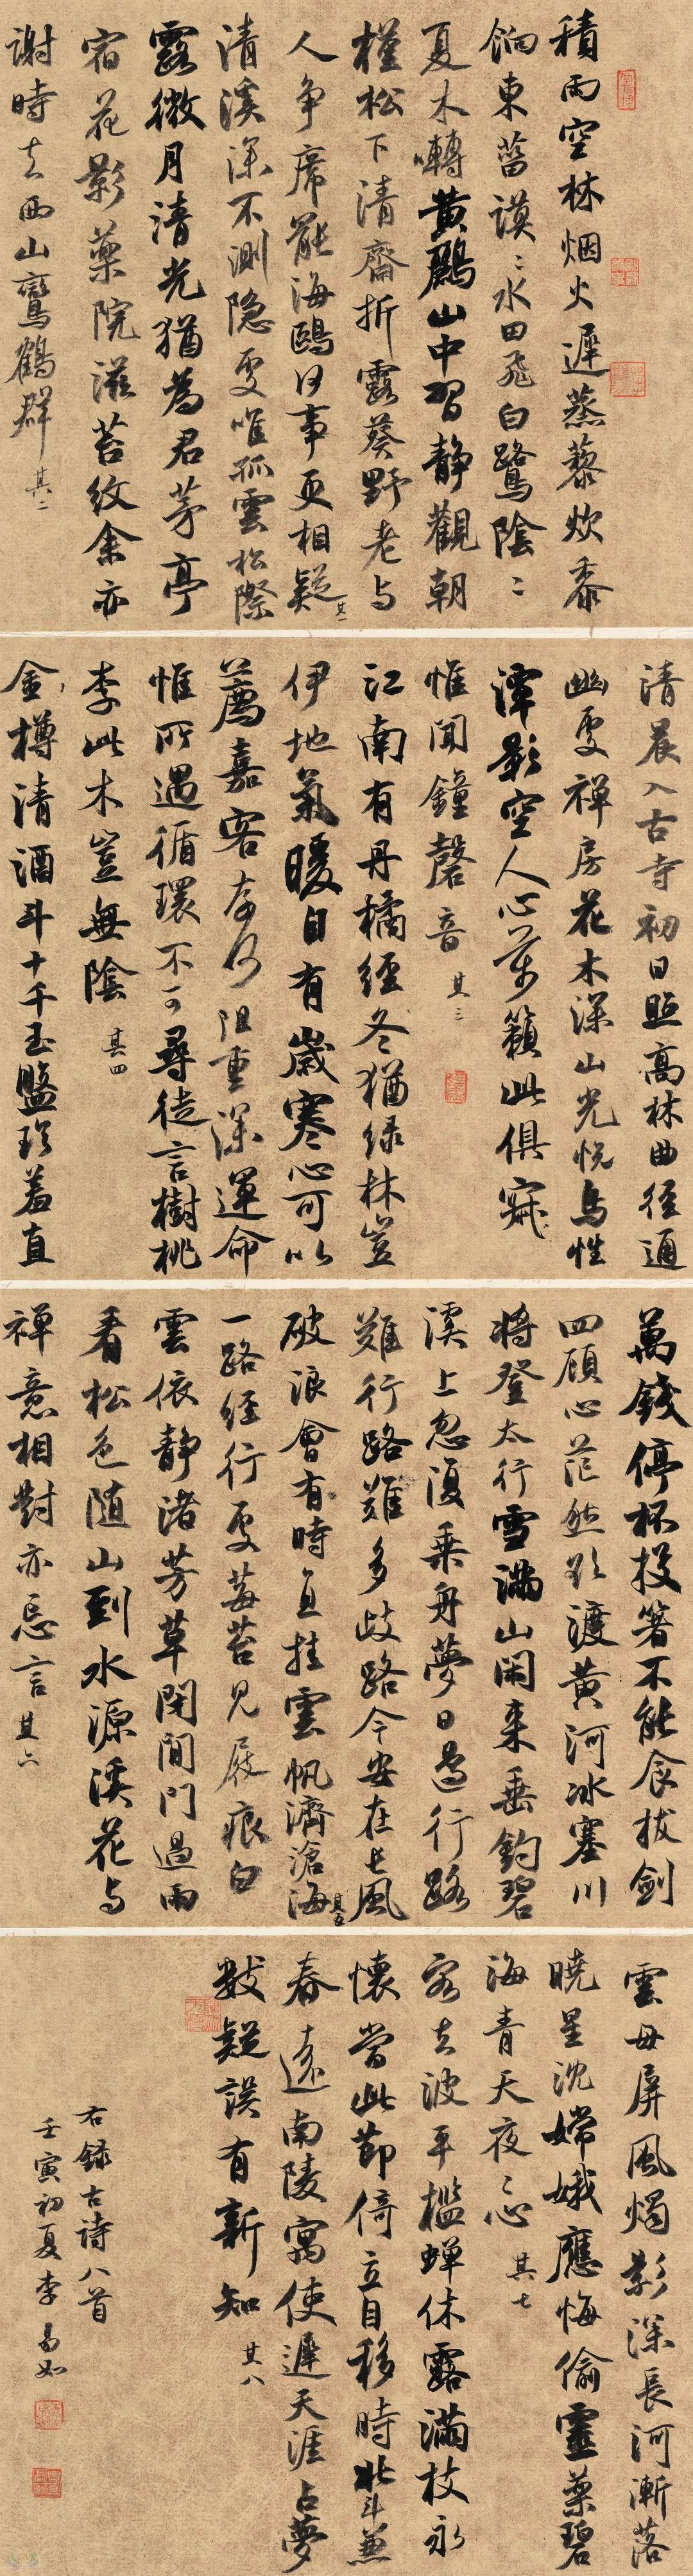 積雨空林烟火遲蒸藜炊黍
餉東菑漠〻水田飛白鷺陰〻
夏木囀黄鸝山中習静觀朝
槿松下清齋折露葵野老与
人争席罷海鷗何事更相疑其一
清溪深不測隐處唯孤雲松際
露微月清光猶為君茅亭
宿花影藥院滋苔紋余亦
謝時去西山鸞鶴群其二
清晨入古寺初日照高林曲徑通
幽處禅房花木深山光悦鳥性
潭影空人心萬籟此俱寂
惟聞鐘磬音其三
江南有丹橘經冬猶緑林豈
伊地氣暖自有歲寒心可以
薦嘉客奈何阻重深運命
惟所遇循環不可尋徒言樹桃
李此木豈無陰其四
金樽清酒斗十千玉盤珍羞直
萬錢停杯投箸不能食拔劍
四顧心茫然欲渡黄河冰塞川
將登太行雪滿山閑来垂釣碧
溪上忽復乗舟夢日邊行路
難行路難多歧路今安在長風
破浪會有時直挂雲帆濟滄海其五
一路經行處莓苔見屐痕白
雲依静渚芳草閉閒門過雨
看松色随山到水源溪花与
禅意相對亦忘言其六
雲母屏風燭影深長河漸落
曉星沈嫦娥應悔偷靈藥碧
海青天夜〻心其七
客去波平檻蟬休露滿枝永
懷當此節倚立自移時北斗兼
春遠南陵寓使遲天涯占夢
數疑誤有新知其八
右録古诗八首
壬寅初夏李易如